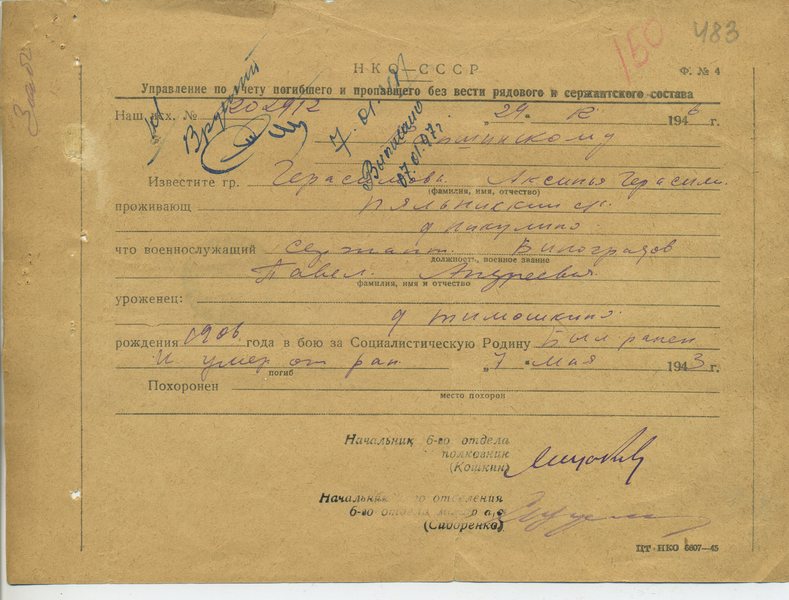 150 483
Забт
НКО—СССР
Ф. № 4
Управление по учету погибшего и пропавшего без вести рядового и сержантского состава
Наш исх. № 202912 „29“ 194 г.
Вручить
7.01.47
Выписано
07.01.47г.
Известите гр. Герасимова Аксинья Герасим.
(фамилия, имя, отчество)
проживающ
д Пикулино
что военнослужащий сержант Виноградов
должность, военное звание
Павел Андреевич
фамилия, имя и отчество
уроженец:
д тимошкино
рождения 1906 года в бою за Социалистическую Родину был ранен
и умер от ран „7“ мая 1943 г.
погиб
Похоронен
место похорон
Начальник 6-го отдела
полковник
(Кошкин)
Начальник го отделения
6-го отдела майор а,с
(Сидоренко)
ЦТ НКО 6807—45